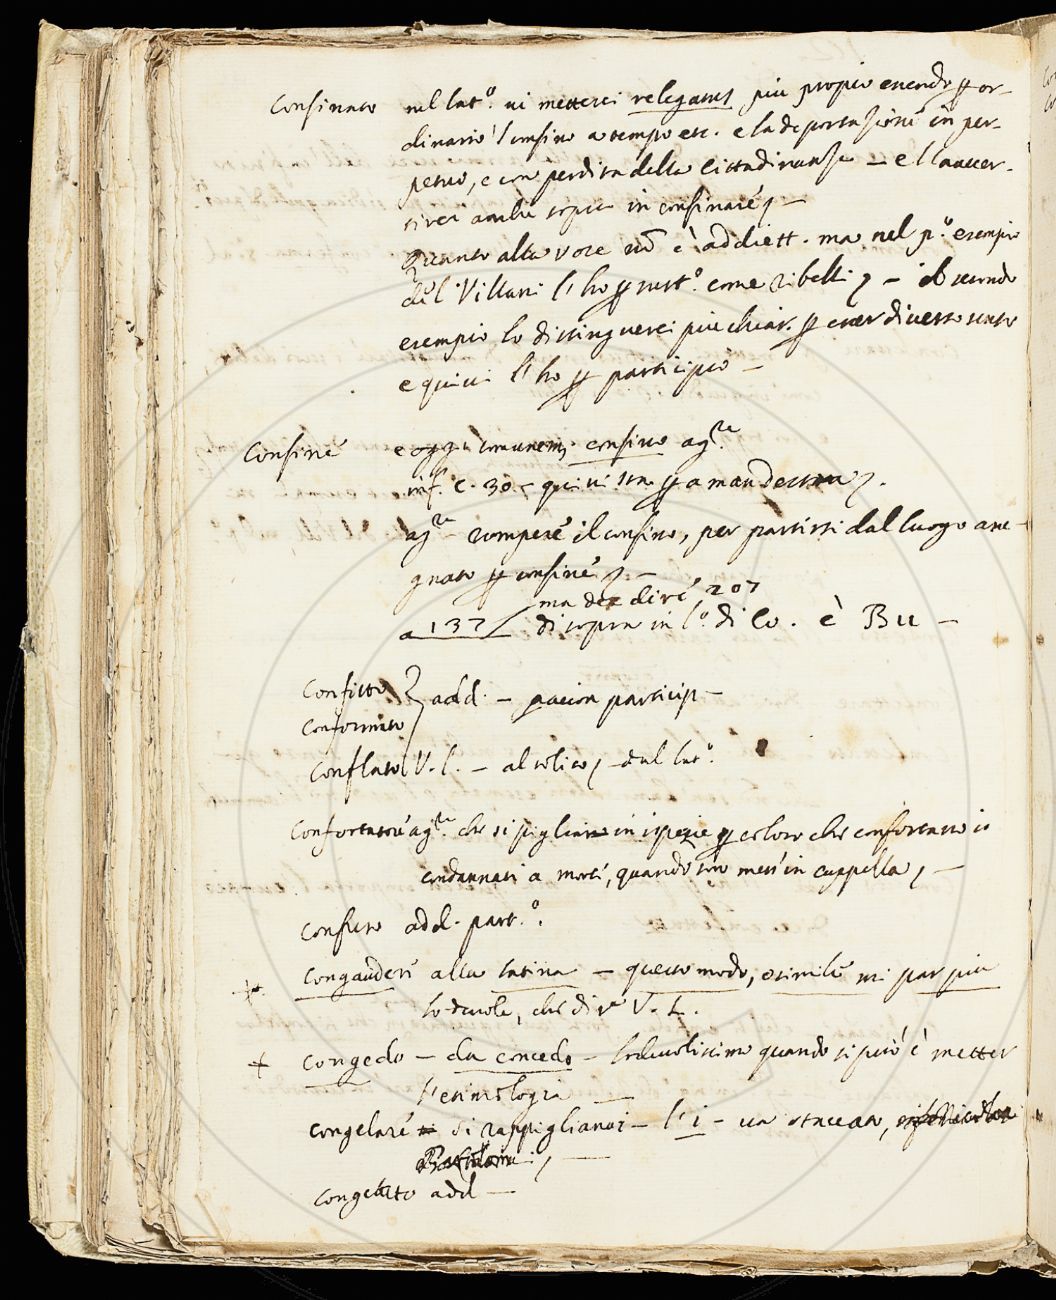 Confinato nel lat.º vi metterei relegatus, più proprio essendo p or-
dinario l'confino a tempo etc. e la deportazione in per-
petuo, e con perdita della cittadinanza — e l'avver-
tirei anche sopra in confinare, —
Quanto alla voce nõ è addiett. ma nel p.º esempio
del Villani l'ho p sust.º come ribelli, — il secondo
esempio lo distinguerei più chiar. p esser diverso senso
e quivi l'ho p participio —
Confine e oggi comunem. confino ag.re
inf. c. 30. quivi sta p a man destra,.
ag.re rompere il confino, per partirsi dal luogo asse-
gnato p confine, —
ma dee dire 207
a 137 / di sopra in l.º di Co. è Bu —
Confitto } add. — particip —
Conformato
Conflato V. L. — al solito, — dal lat.º
Confortatore ag.re che si pigliano in ispezie p coloro che confortano i
condannati a morte, quando son messi in cappella, —
Confuso add. part.º.
Congaudere alla latina — questo modo, o simile mi par più
lodevole, che dire V. L.
Congedo — da concedo — lodevolissimo quando si può è metter
l'etimologia —
Congelare — si rappigliansi — l'i — va staccato,
Congelato add —